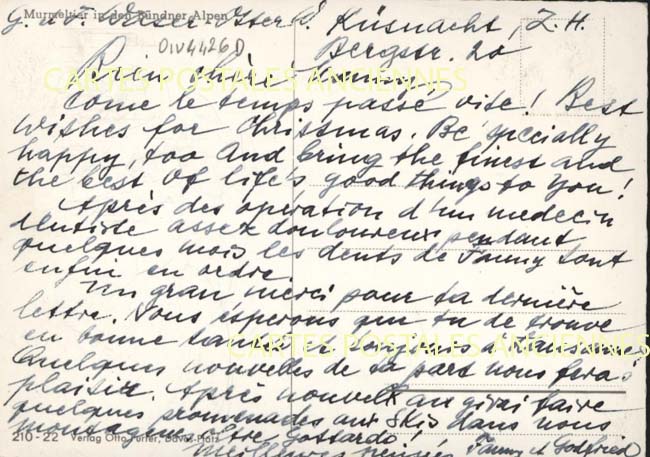 Murmeltier in den Bündner Alpen
G. u. F. Weser-Osterw. Küsnacht, Z.H.
OIV4426D
Bergstr. 20
Bien chère
CARTES POSTALES ANCIENNES
Come le temps passe vite! Best
wishes for Christmas. Be specially
happy, too And bring the finest and
the best Of life's good things to You!
Après des operation d'un medecin
dentiste assez douloureux pendant
quelques mois les dents de Fanny sont
enfin en ordre
Un gran merci pour ta dernière
lettre. Nous esperons que tu de trouve
en bonne
CARTES POSTALES ANCIENNES
Quelques nouvelles de ta part nous fera
plaisir. Après nouvel an girai faire
quelques promenades aux Skis dans nous
montagnes Gottardo!
210 - 22 Verlag Otto Furter, Davos-Platz
Meilleures pensées Fanny et Godfried